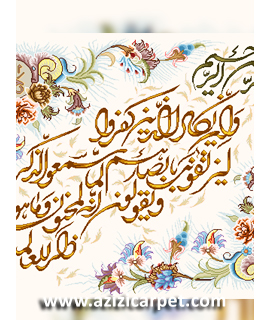 حمن الرحیم
وان یکاد الذین کفروا
لیزلقونک بابصارهم لما سمعوا الذکر
و یقولون انه لمجنون و ما هو
ذکر للعا
www.azizicarpet.com